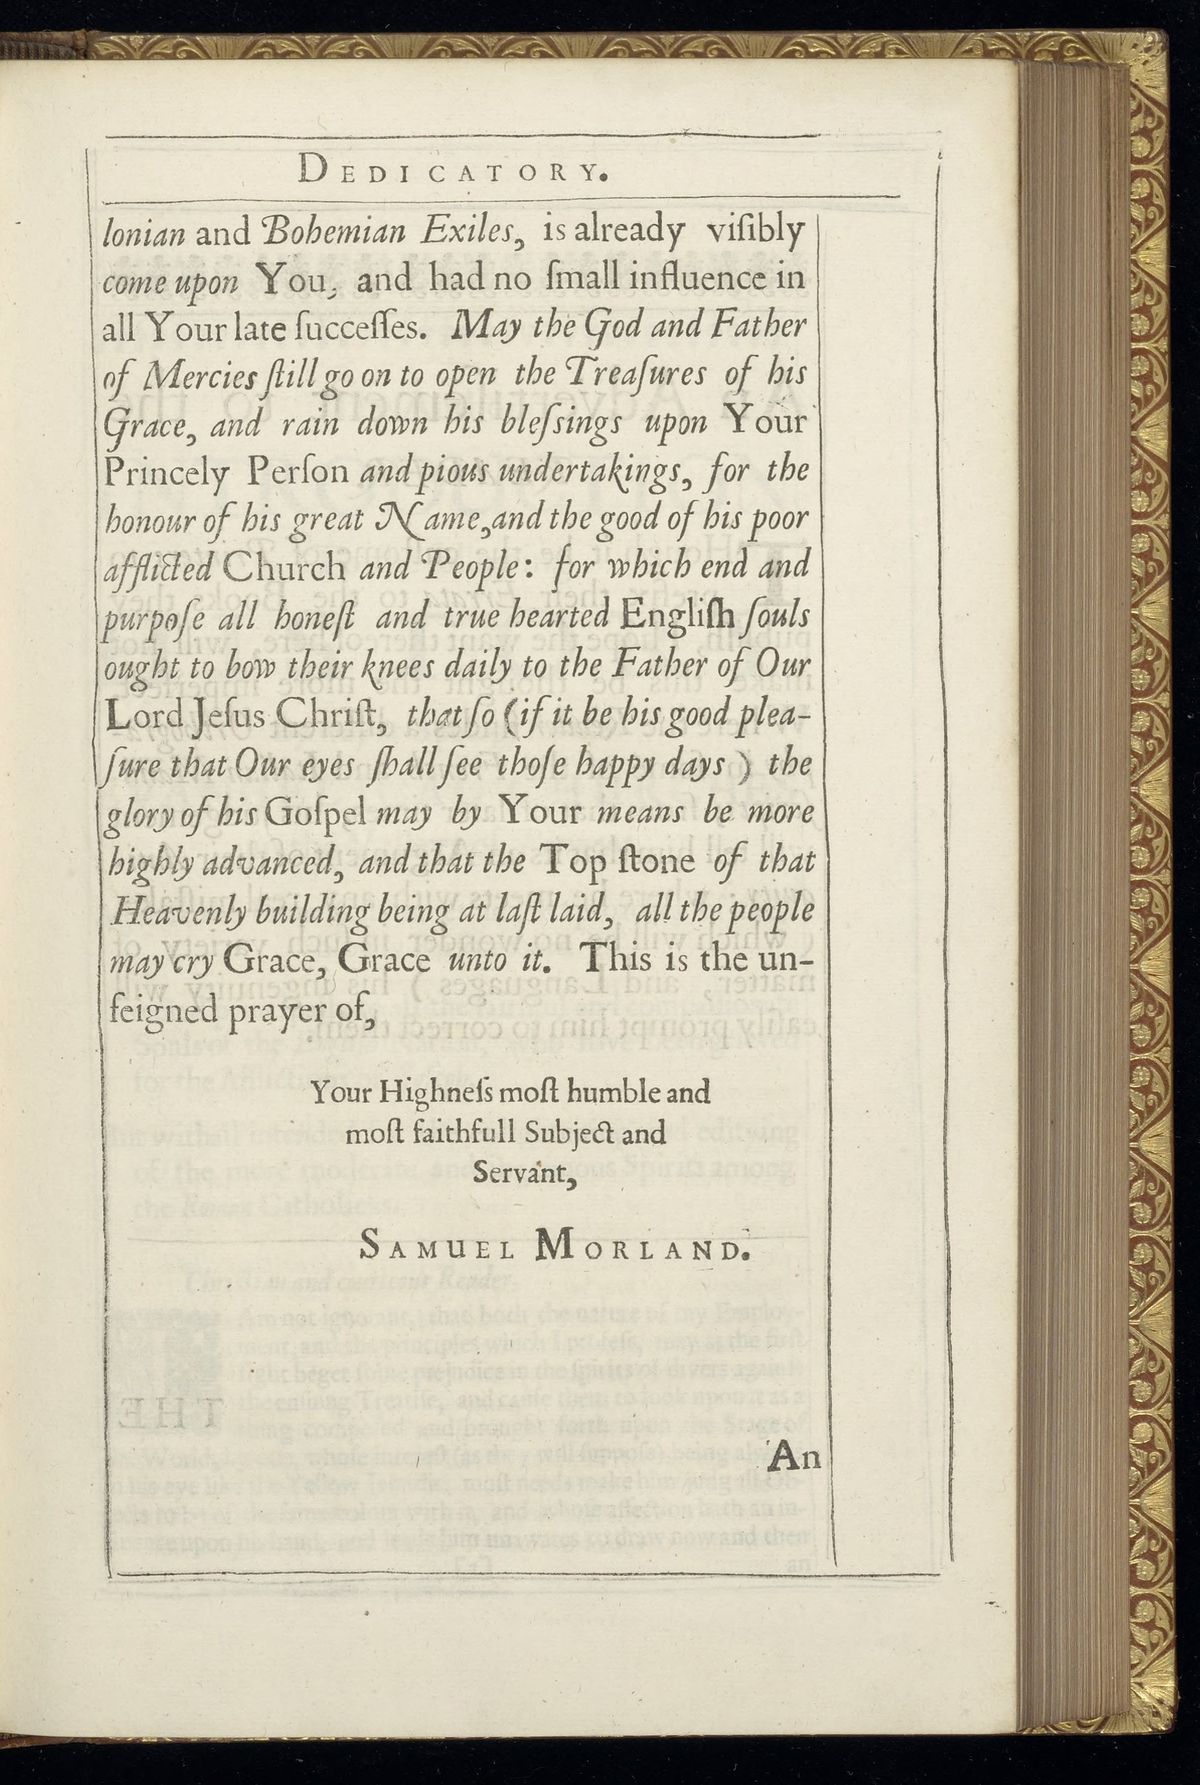 DEDICATORY.
lonian and Bohemian Exiles, is already viſibly
come upon You, and had no ſmall influence in
all Your late ſucceſſes. May the God and Father
of Mercies ſtill go on to open the Treaſures of his
Grace, and rain down his bleſsings upon Your
Princely Perſon and pious undertakings, for the
honour of his great Name, and the good of his poor
afflicted Church and People: for which end and
purpoſe all honeſt and true hearted Engliſh ſouls
ought to bow their knees daily to the Father of Our
Lord Jeſus Chriſt, that ſo (if it be his good plea-
ſure that Our eyes ſhall ſee thoſe happy days) the
glory of his Goſpel may by Your means be more
highly advanced, and that the Top ſtone of that
Heavenly building being at laſt laid, all the people
may cry Grace, Grace unto it. This is the un-
feigned prayer of,
Your Highneſs moſt humble and
moſt faithfull Subject and
Servant,
SAMUEL MORLAND.
An